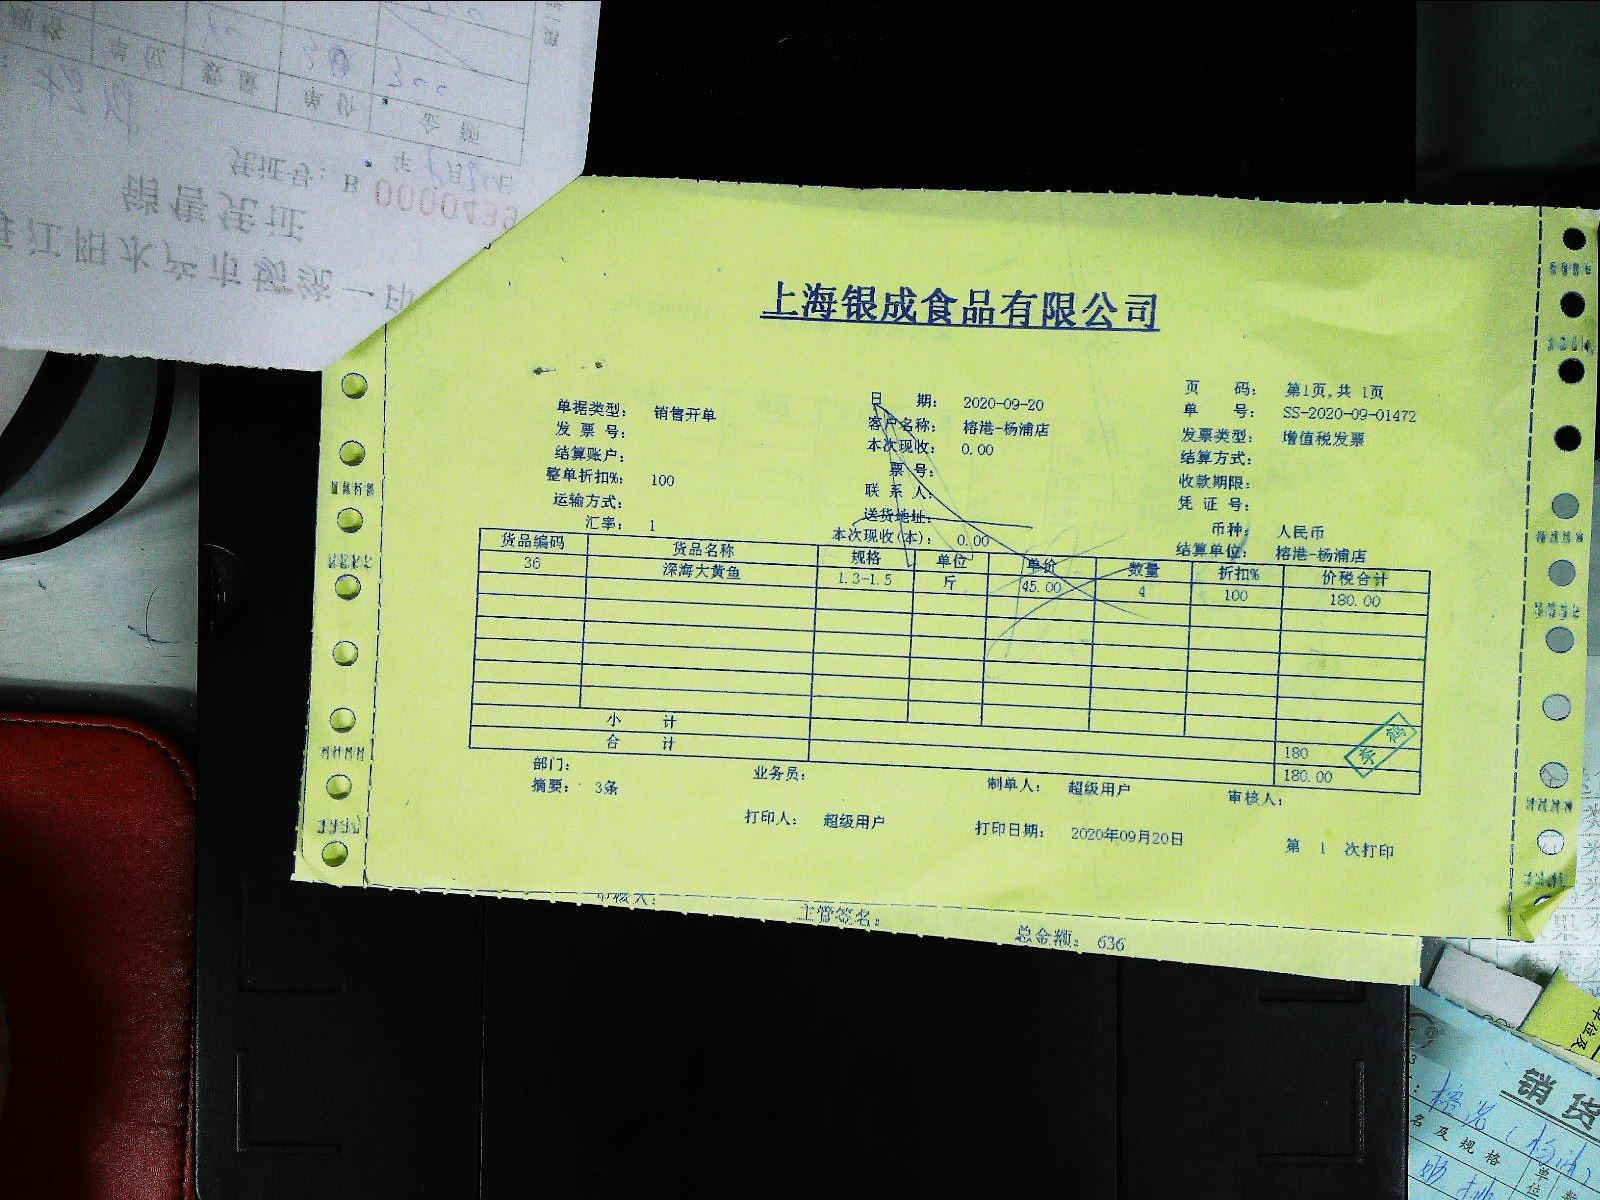 上海银成食品有限公司
单据类型： 销售开单
日 期： 2020-09-20
页 码： 第1页,共 1页
发 票 号：
客户名称： 榕港-杨浦店
单 号： SS-2020-09-01472
结算账户：
本次现收： 0.00
发票类型： 增值税发票
整单折扣%： 100
票号：
结算方式：
运输方式：
联 系 人：
收款期限：
汇率： 1
送货地址：
凭 证 号：
本次现收(本)： 0.00
币种： 人民币
结算单位： 榕港-杨浦店
货品编码 货品名称 规格 单位 单价 数量 折扣% 价税合计
36 深海大黄鱼 1.3-1.5 斤 45.00 4 100 180.00
小 计 180
合 计 180.00
部门： 业务员： 制单人： 超级用户 审核人：
摘要： 3条
打印人： 超级用户 打印日期： 2020年09月20日 第 1 次打印
主管签名：
总金额： 636
销售凭证
凭证号：B 0000439
江阳水产市场统一印
单价
数量
金额
300
销货
名及规格
单位